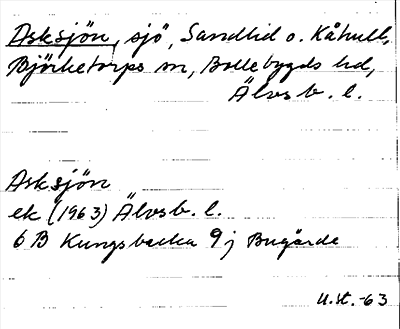 Asksjön, sjö, Sandlid o. Kåhult,
Björketorps sn, Bollebygds hd,
Älvsb. l.
Asksjön
ek (1963) Älvsb. l.
6 B Kungsbacka 9 j Bugärde
U.st.-63